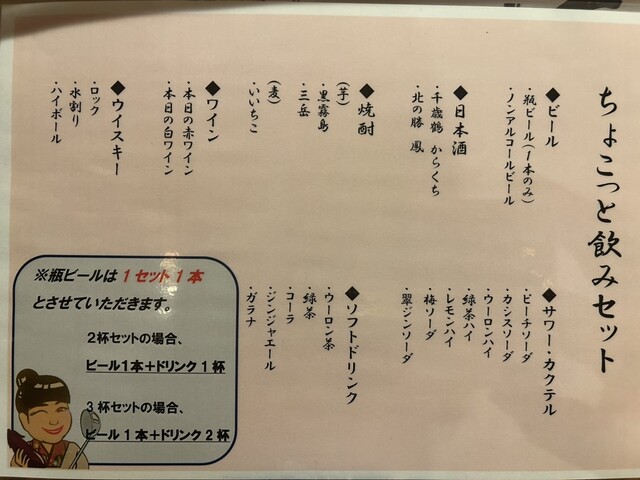 ちょこっと飲みセット
◆ビール
・瓶ビール(1本のみ)
・ノンアルコールビール
◆日本酒
・千歳鶴 からくち
・北の勝 鳳
◆焼酎
(芋)
・黒霧島
・三岳
(麦)
・いいちこ
◆ワイン
・本日の赤ワイン
・本日の白ワイン
◆ウイスキー
・ロック
・水割り
・ハイボール
◆サワー・カクテル
・ピーチソーダ
・カシスソーダ
・ウーロンハイ
・緑茶ハイ
・レモンハイ
・梅ソーダ
・翠ジンソーダ
◆ソフトドリンク
・ウーロン茶
・緑茶
・コーラ
・ジンジャエール
・ガラナ
※瓶ビールは1セット1本
とさせていただきます。
2杯セットの場合、
ビール1本+ドリンク1杯
3杯セットの場合、
ビール1本+ドリンク2杯